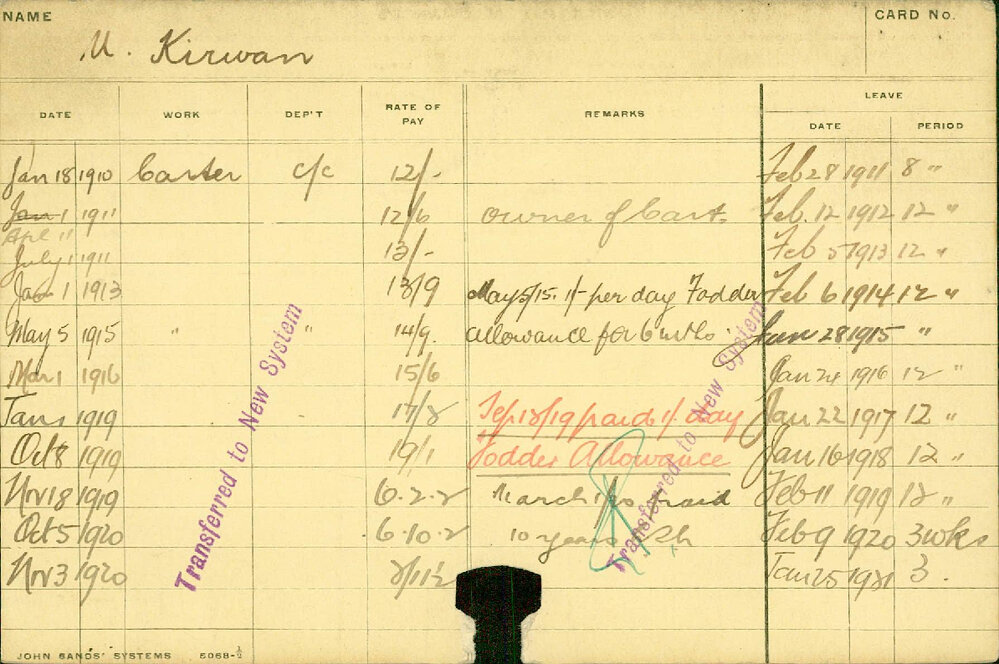 NAME
CARD No.
M. Kirwan
LEAVE
DATE WORK DEP'T RATE OF PAY REMARKS DATE PERIOD
Jan 18 1910 Carter c/c 12/- Feb 28 1911 8 "
Jan 1 1911 12/6 owner of Cart. Feb. 12 1912 12 "
Apl 11
July 1 1911 13/- Feb 5 1913 12 "
Jan 1 1913 13/9 May 5/15. 1/- per day Fodder Feb 6 1914 12 "
May 5 1915 " " 14/9. allowance for 6 mths Jan 28 1915 "
Mar 1 1916 15/6 Jan 24 1916 12 "
Jan 1 1919 17/8 Sep 18/19 paid 1/- day Jan 22 1917 12 "
Oct 8 1919 19/1 Fodder Allowance Jan 16 1918 12 "
Nov 18 1919 6.2.2 March paid Feb 11 1919 12 "
Oct 5 1920 6.10.2 10 years Feb 9 1920 3 wks
Nov 3 1920 Jan 25 1921 3.
Transferred to New System
Transferred to New System
JOHN SANDS' SYSTEMS 5068-½